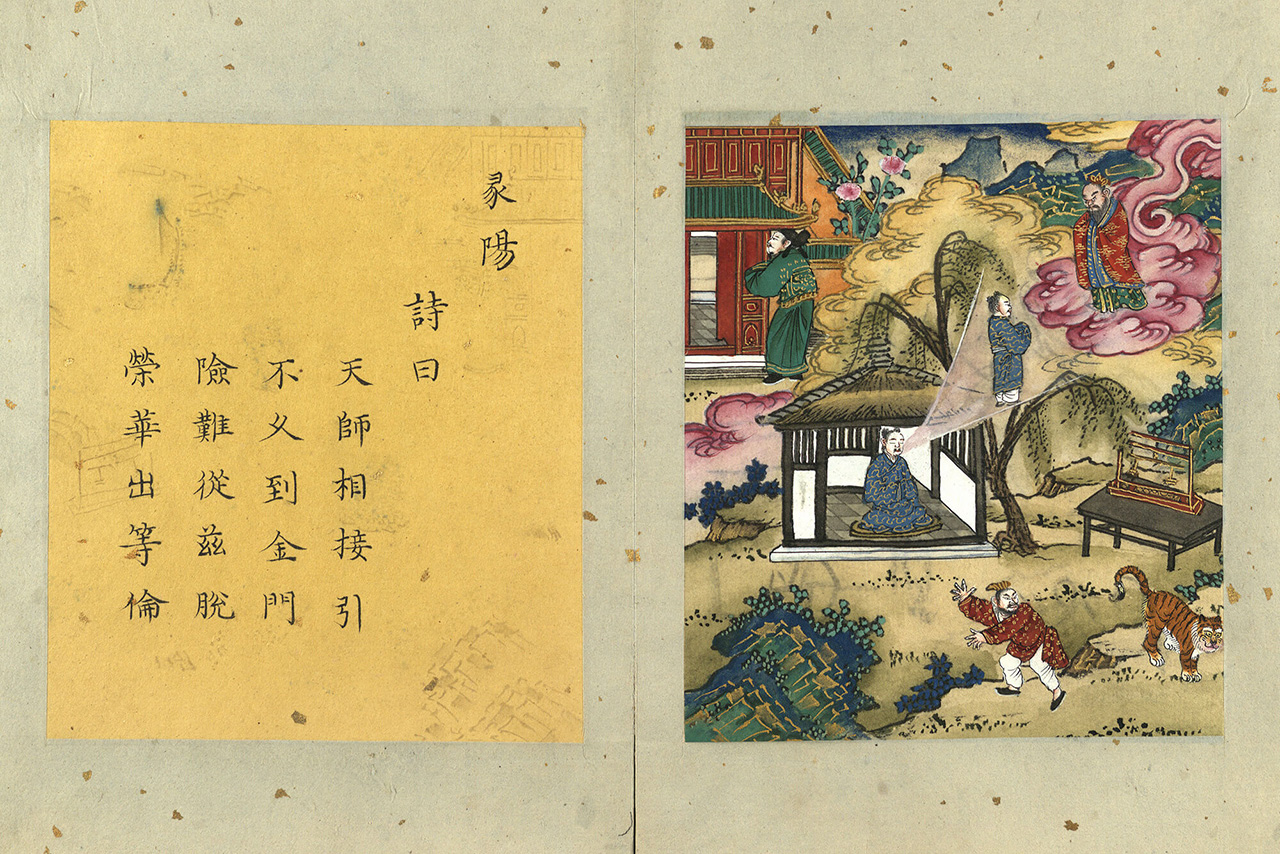 陽
詩曰
天師相接引
不久到金門
險難從茲脫
榮華出等倫